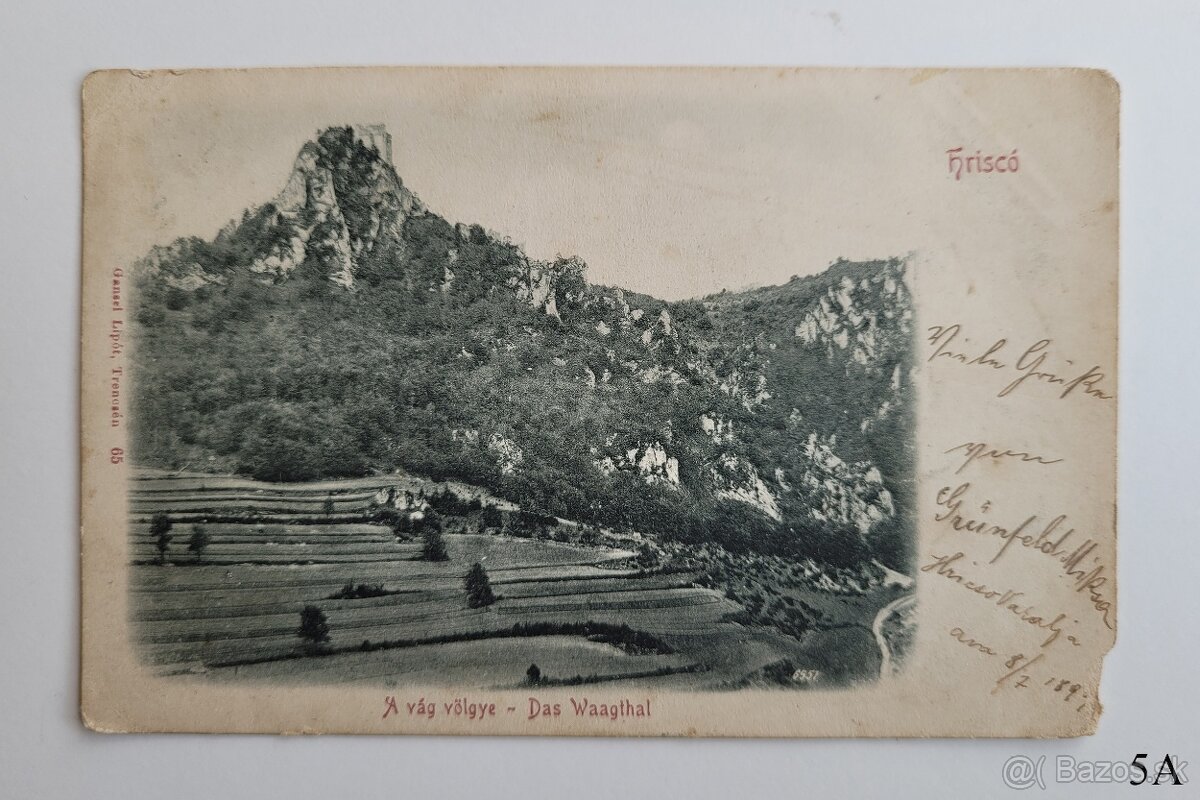 Hriscó
Gansel Lipót, Trencsén 65
Viele Grüße
von
Grünfeld Miksa
Hricsóváralja
8/7 189
6937
A vág völgye - Das Waagthal
5A
@( Bazos.sk